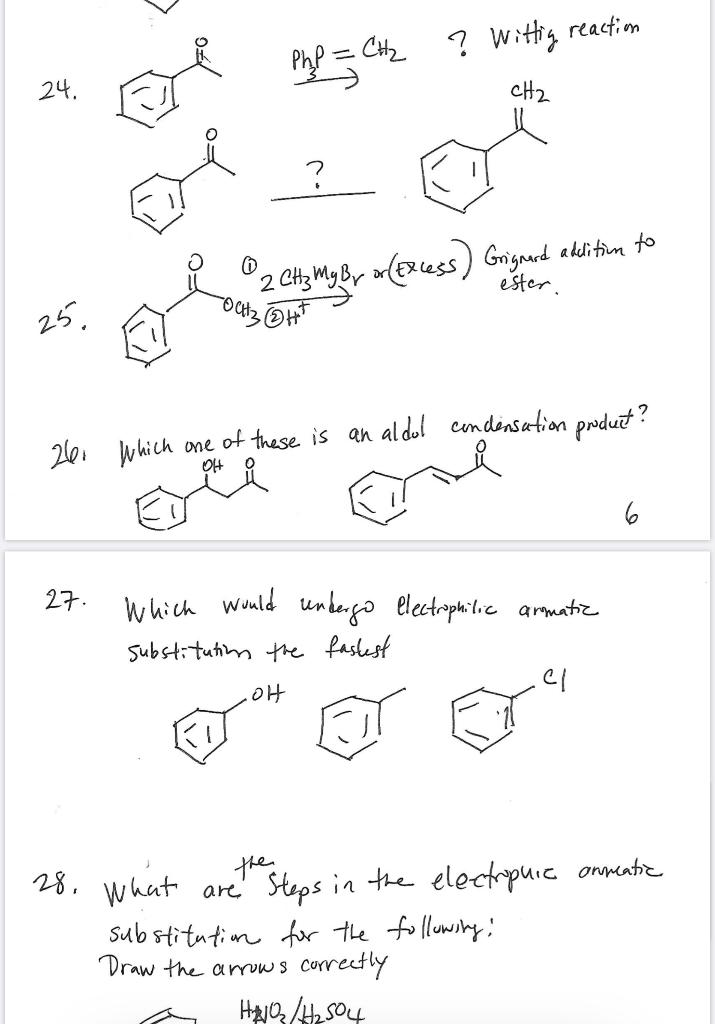 24.
O
Ph3P = CH2
? Wittig reaction
O
?
CH2
25.
O
OCH3
① 2 CH3MgBr or (Excess)
② H+
Grignard addition to
ester.
26. Which one of these is an aldol condensation product?
OH O
O
6
27. Which would undergo electrophilic aromatic
substitution the fastest
OH
Cl
28. What are the steps in the
substitution for the following:
Draw the arrows correctly
HNO3/H2SO4